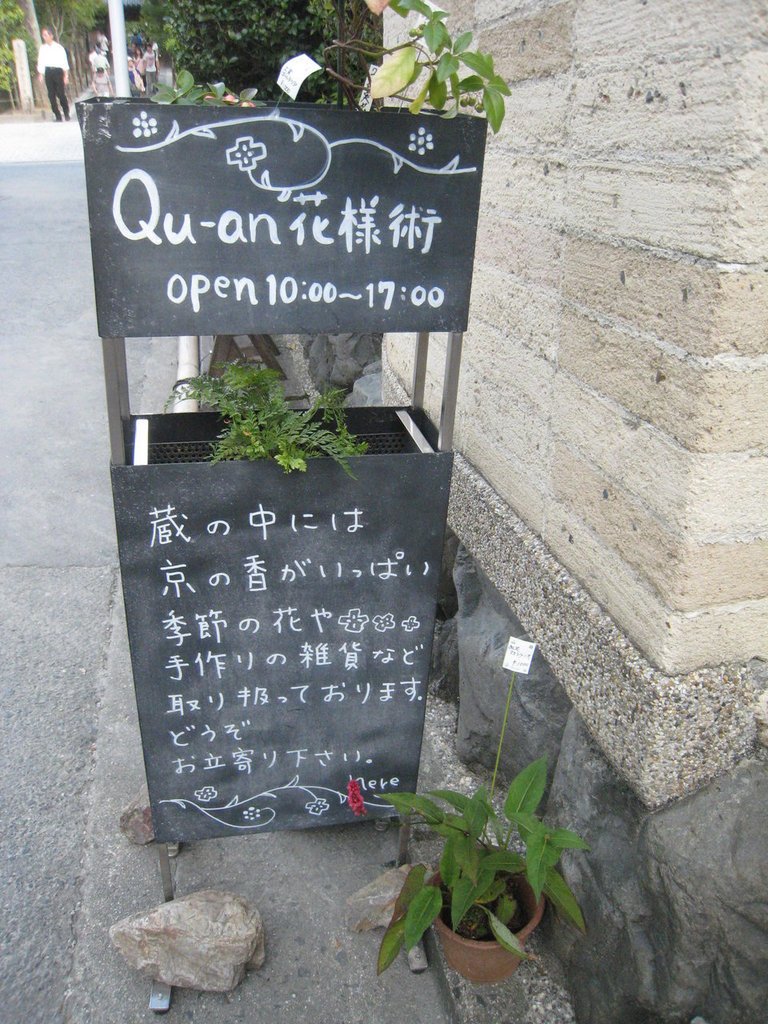 Qu-an 花様術
open 10:00～17:00
蔵の中には
京の香がいっぱい
季節の花や
手作りの雑貨など
取り扱っております。
どうぞ
お立寄り下さい。